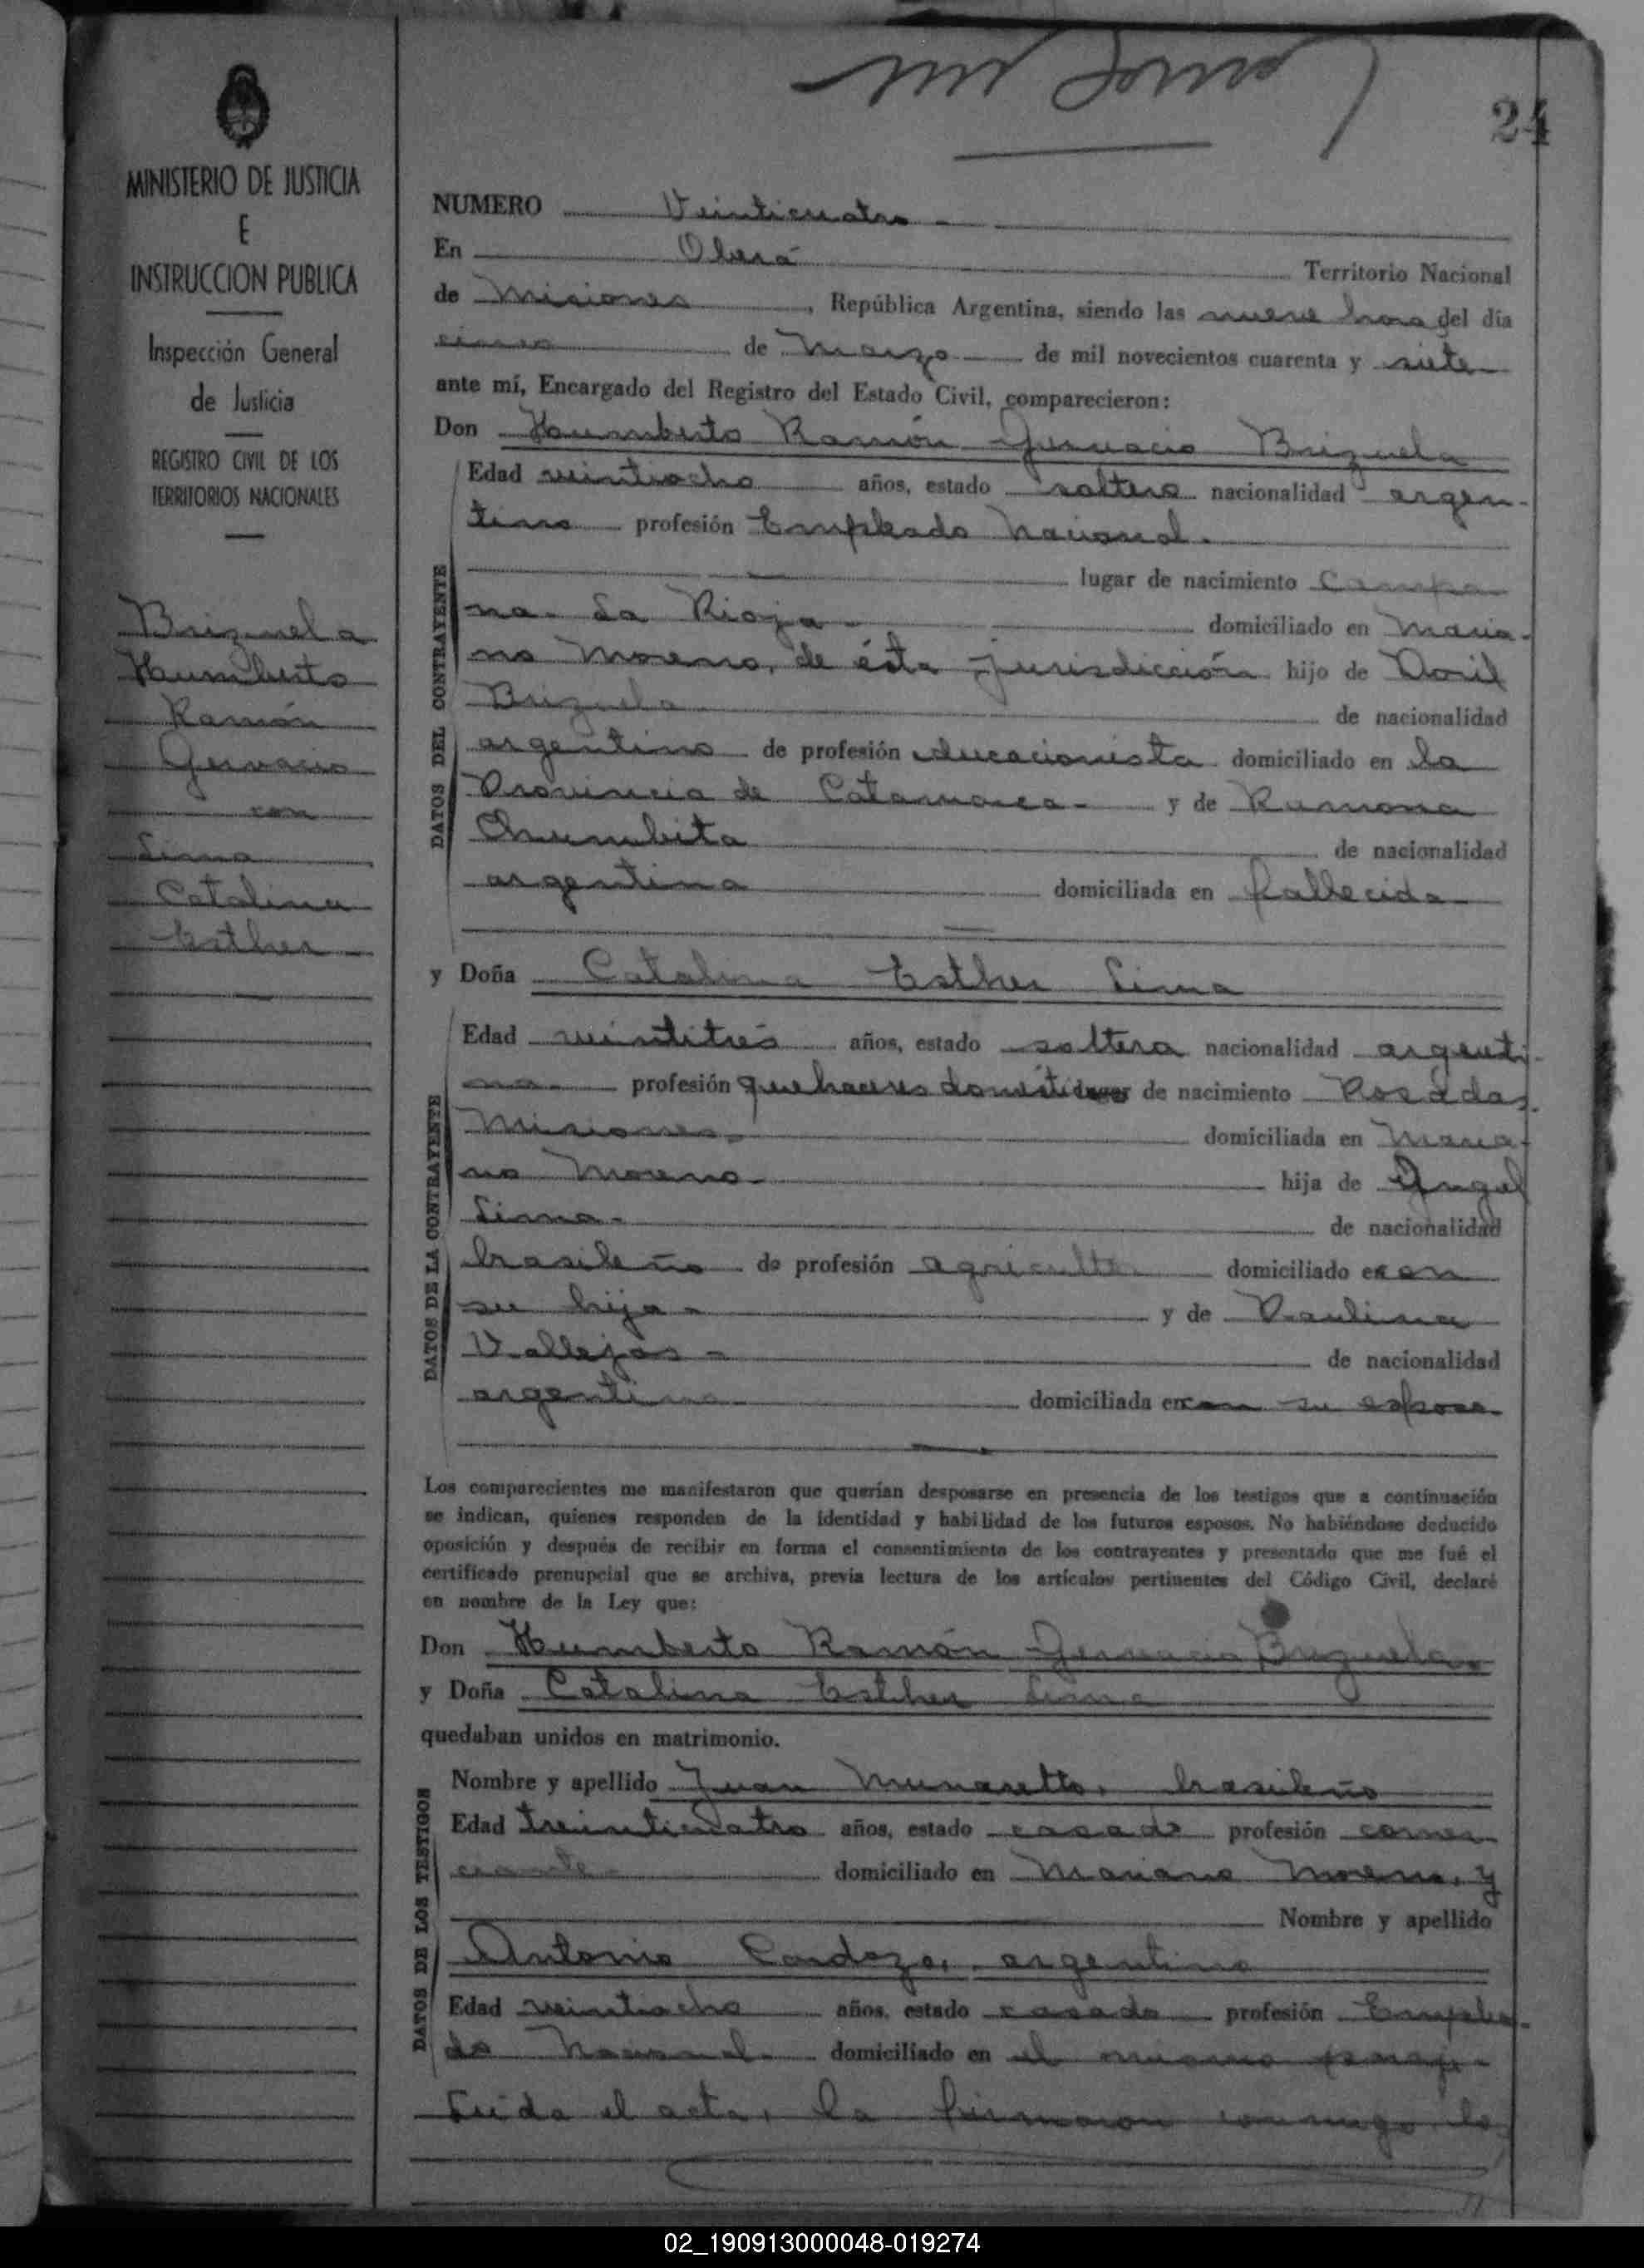 24
MINISTERIO DE JUSTICIA
E
INSTRUCCION PUBLICA
Inspección General
de Justicia
REGISTRO CIVIL DE LOS
TERRITORIOS NACIONALES
Brizuela
Humberto
Ramón
Gervacio
con
Lima
Catalina
Esther
NUMERO Veinticuatro -
En Oberá Territorio Nacional
de Misiones, República Argentina, siendo las nueve horas del día
cinco de Marzo de mil novecientos cuarenta y siete
ante mí, Encargado del Registro del Estado Civil, comparecieron:
Don Humberto Ramón Gervacio Brizuela
DATOS DEL CONTRAYENTE
Edad veintiocho años, estado soltero nacionalidad argen-
tino profesión Empleado Nacional.
lugar de nacimiento Campa
na - La Rioja - domiciliado en Maria-
no Moreno, de ésta jurisdicción hijo de Doril
Brizuela de nacionalidad
argentino de profesión educacionista domiciliado en la
Provincia de Catamarca - y de Ramona
Chumbita de nacionalidad
argentina domiciliada en fallecida
y Doña Catalina Esther Lima
DATOS DE LA CONTRAYENTE
Edad veintitrés años, estado soltera nacionalidad argenti-
na - profesión quehaceres domésticos lugar de nacimiento Posadas,
Misiones - domiciliada en Maria-
no Moreno - hija de Angel
Lima - de nacionalidad
brasileño de profesión agricultor domiciliado en con
su hija - y de Paulina
Vallejos - de nacionalidad
argentina domiciliada en con su esposo -
Los comparecientes me manifestaron que querían desposarse en presencia de los testigos que a continuación
se indican, quienes responden de la identidad y habilidad de los futuros esposos. No habiéndose deducido
oposición y después de recibir en forma el consentimiento de los contrayentes y presentado que me fué el
certificado prenupcial que se archiva, previa lectura de los artículos pertinentes del Código Civil, declaré
en nombre de la Ley que:
Don Humberto Ramón Gervacio Brizuela
y Doña Catalina Esther Lima
quedaban unidos en matrimonio.
DATOS DE LOS TESTIGOS
Nombre y apellido Juan Munaretto, brasileño
Edad treinticuatro años, estado casado profesión comer-
ciante - domiciliado en Mariano Moreno, y
Nombre y apellido
Antonio Cardozo, argentino
Edad veintiocho años, estado casado profesión Emplea-
do Nacional - domiciliado en el mismo paraje -
Leida el acta, la firmaron conmigo los
02_190913000048-019274